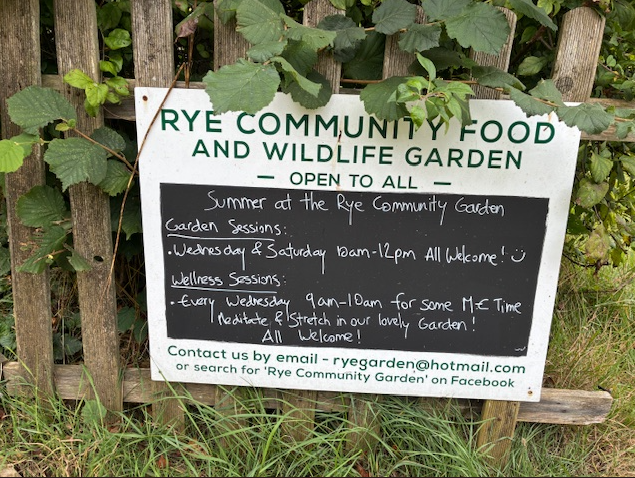 RYE COMMUNITY FOOD
AND WILDLIFE GARDEN
— OPEN TO ALL —
Summer at the Rye Community Garden
Garden Sessions:
• Wednesday & Saturday 10am-12pm All Welcome! :)
Wellness Sessions:
• Every Wednesday 9am-10am for some M.E Time
Meditate & Stretch in our lovely Garden!
All Welcome!
Contact us by email - ryegarden@hotmail.com
or search for 'Rye Community Garden' on Facebook